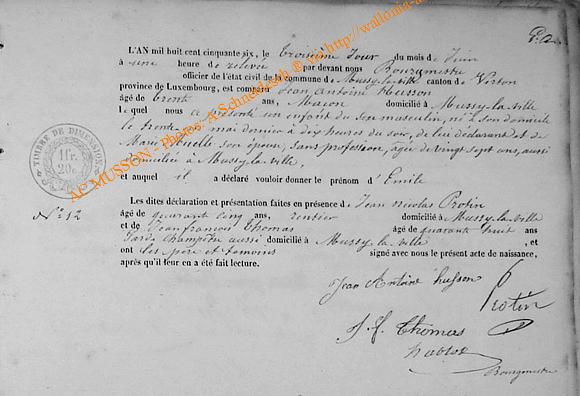 L'AN mil huit cent cinquante six, le troisième jour du mois de Juin
à une heure de relevée par devant nous Bourgmestre
officier de l'état civil de la commune de Mussy-la-ville canton de Virton
province de Luxembourg, est comparu Jean Antoine Husson
âgé de trente ans, Maçon domicilié à Mussy-la-ville
lequel nous a présenté un enfant du sexe masculin, né à son domicile
le trente mai dernier à dix heures du soir, de lui déclarant et de
Marie son épouse, sans profession, âgée de vingt sept ans, aussi
domiciliée à Mussy-la-ville,
et auquel il a déclaré vouloir donner le prénom d'Emile
N° 12
Les dites déclaration et présentation faites en présence de Jean Nicolas Protin
âgé de quarante cinq ans, rentier domicilié à Mussy-la-ville
et de Jean françois Thomas âgé de quarante huit ans
Garde Champêtre aussi domicilié à Mussy la ville, et
ont les père et témoins signé avec nous le présent acte de naissance,
après qu'il leur en a été fait lecture.
Jean Antoine husson
Protin
J. f. Thomas
Bourgmestre
TIMBRE DE DIMENSION
1 fr.
20 c.
AC MUSSON - Photos: A Schneckenb © via http://wallonia-